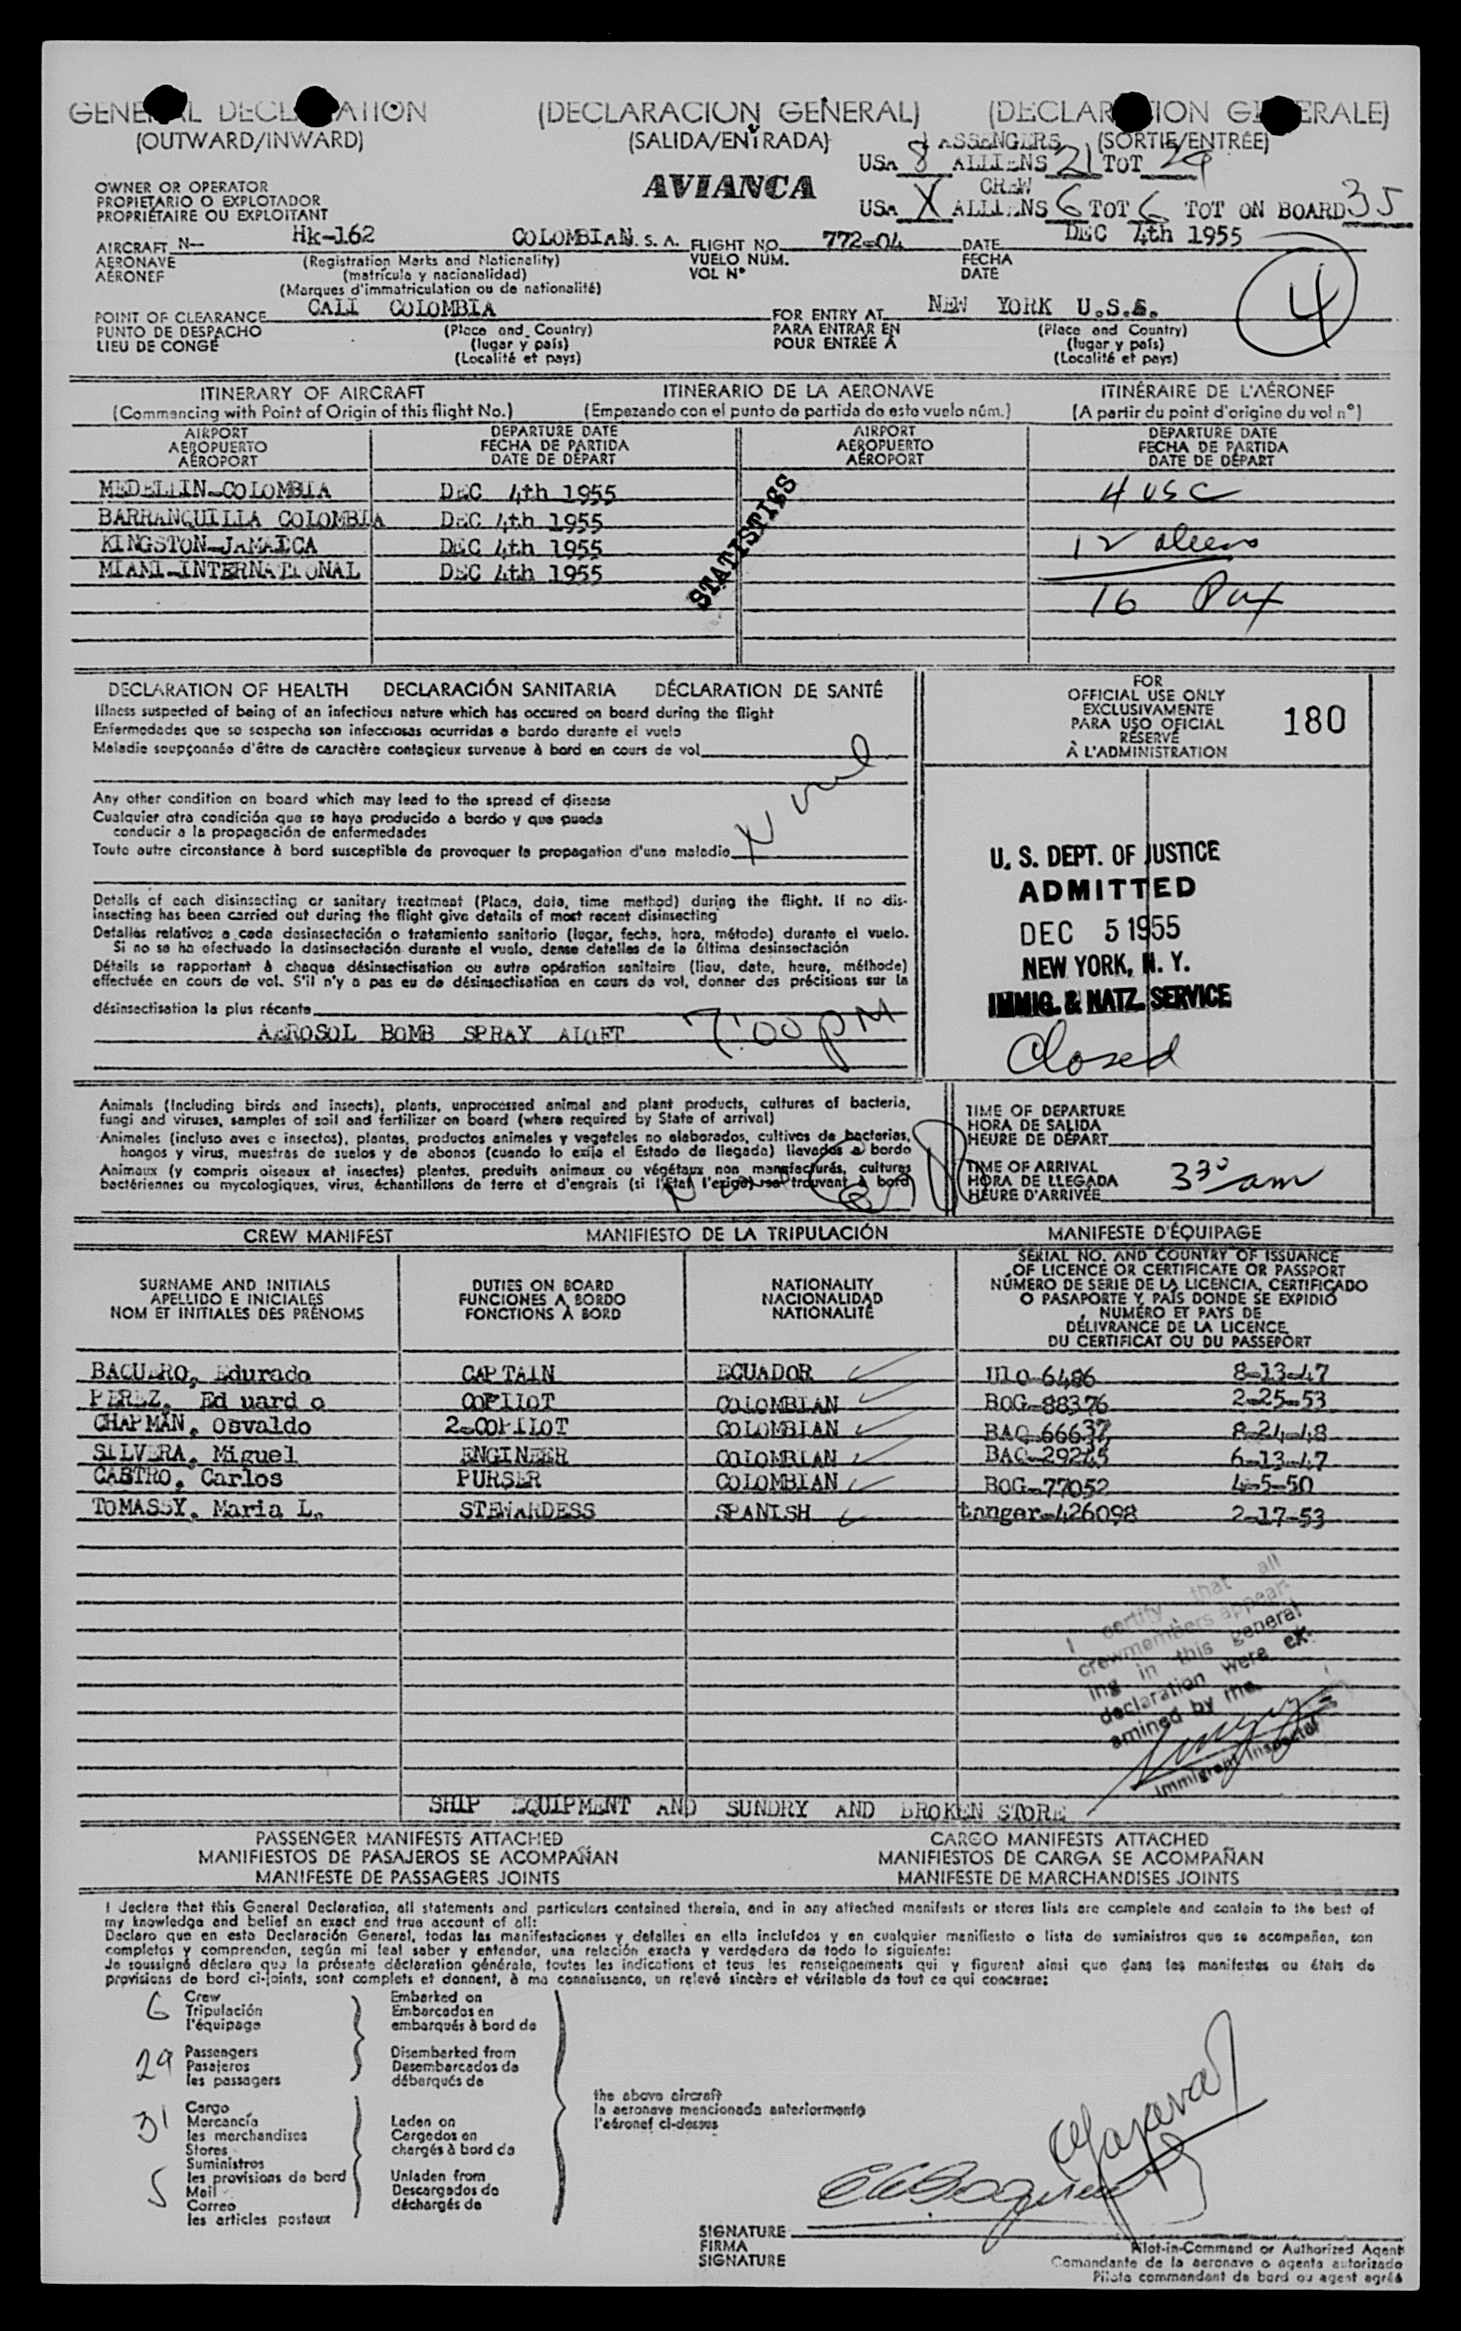 GENERAL DECLARATION (DECLARACION GENERAL) (DECLARATION GENERALE)
(OUTWARD/INWARD) (SALIDA/ENTRADA) (SORTIE/ENTRÉE)
PASSENGERS
USA 8 ALLIENS 21 TOT 29
AVIANCA
CREW
USA X ALLIENS 6 TOT 6 TOT ON BOARD 35
OWNER OR OPERATOR
PROPIETARIO O EXPLOTADOR
PROPRIÉTAIRE OU EXPLOITANT
AIRCRAFT N— Hk-162 COLOMBIAN. S. A. FLIGHT NO. 772-04 DATE DEC 4th 1955
AERONAVE (Registration Marks and Nationality) VUELO NUM. FECHA
AÉRONEF (matrícula y nacionalidad) VOL Nº DATE
(Marques d'immatriculation ou de nationalité)
4
POINT OF CLEARANCE CALI COLOMBIA FOR ENTRY AT NEW YORK U.S.A.
PUNTO DE DESPACHO (Place and Country) PARA ENTRAR EN (Place and Country)
LIEU DE CONGÉ (lugar y país) POUR ENTRÉE A (lugar y país)
(Localité et pays) (Localité et pays)
ITINERARY OF AIRCRAFT ITINERARIO DE LA AERONAVE ITINÉRAIRE DE L'AÉRONEF
(Commencing with Point of Origin of this flight No.) (Empezando con el punto de partida de este vuelo núm.) (A partir du point d'origine du vol nº)
AIRPORT DEPARTURE DATE AIRPORT DEPARTURE DATE
AEROPUERTO FECHA DE PARTIDA AEROPUERTO FECHA DE PARTIDA
AÉROPORT DATE DE DÉPART AÉROPORT DATE DE DÉPART
MEDELLIN-COLOMBIA DEC 4th 1955 4 USC
BARRANQUILLA COLOMBIA DEC 4th 1955
KINGSTON-JAMAICA DEC 4th 1955 12 aliens
MIAMI-INTERNATIONAL DEC 4th 1955
16 Pax
STATISTICS
DECLARATION OF HEALTH DECLARACIÓN SANITARIA DÉCLARATION DE SANTÉ
Illness suspected of being of an infectious nature which has occured on board during the flight
Enfermedades que se sospecha son infecciosas ocurridas a bordo durante el vuelo
Maladie soupçonnée d'être de caractère contagieux survenue à bord en cours de vol
Any other condition on board which may lead to the spread of disease
Cualquier otra condición que se haya producido a bordo y que pueda
conducir a la propagación de enfermedades
Toute autre circonstance à bord susceptible de provoquer la propagation d'une maladie
Details of each disinsecting or sanitary treatment (Place, date, time method) during the flight. If no dis-
insecting has been carried out during the flight give details of most recent disinsecting
Detalles relativos a cada desinsectación o tratamiento sanitario (lugar, fecha, hora, método) durante el vuelo.
Si no se ha efectuado la desinsectación durante el vuelo, dense detalles de la última desinsectación
Détails se rapportant à chaque désinsectisation ou autre opération sanitaire (lieu, date, heure, méthode)
effectuée en cours de vol. S'il n'y a pas eu de désinsectisation en cours de vol, donner des précisions sur la
désinsectisation la plus récente
AEROSOL BOMB SPRAY ALOFT 7:00 PM
FOR
OFFICIAL USE ONLY
EXCLUSIVAMENTE
PARA USO OFICIAL
RÉSERVÉ
À L'ADMINISTRATION
180
U. S. DEPT. OF JUSTICE
ADMITTED
DEC 5 1955
NEW YORK, N. Y.
IMMIG. & NATZ. SERVICE
Closed
Animals (Including birds and insects), plants, unprocessed animal and plant products, cultures of bacteria,
fungi and viruses, samples of soil and fertilizer on board (where required by State of arrival)
Animales (incluso aves e insectos), plantas, productos animales y vegetales no elaborados, cultivos de bacterias,
hongos y virus, muestras de suelos y de abonos (cuando lo exija el Estado de llegada) llevados a bordo
Animaux (y compris oiseaux et insectes) plantes, produits animaux ou végétaux non manufacturés, cultures
bactériennes ou mycologiques, virus, échantillons de terre et d'engrais (si l'État l'exige) se trouvant à bord
TIME OF DEPARTURE
HORA DE SALIDA
HEURE DE DÉPART
TIME OF ARRIVAL
HORA DE LLEGADA
HEURE D'ARRIVÉE
3 30 am
CREW MANIFEST MANIFIESTO DE LA TRIPULACIÓN MANIFESTE D'ÉQUIPAGE
SURNAME AND INITIALS
APELLIDO E INICIALES
NOM ET INITIALES DES PRÉNOMS
DUTIES ON BOARD
FUNCIONES A BORDO
FONCTIONS À BORD
NATIONALITY
NACIONALIDAD
NATIONALITÉ
SERIAL NO. AND COUNTRY OF ISSUANCE
OF LICENCE OR CERTIFICATE OR PASSPORT
NÚMERO DE SERIE DE LA LICENCIA, CERTIFICADO
O PASAPORTE Y PAÍS DONDE SE EXPIDIÓ
NUMÉRO ET PAYS DE
DÉLIVRANCE DE LA LICENCE
DU CERTIFICAT OU DU PASSEPORT
BAQUERO, Edurado CAPTAIN ECUADOR UIO-6486 8-13-47
PEREZ. Ed uard o COPILOT COLOMBIAN BOG-88376 2-25-53
CHAPMAN, Osvaldo 2-COPILOT COLOMBIAN BAQ-66637 8-24-48
SILVERA, Miguel ENGINEER COLOMBIAN BAQ-29245 6-13-47
CASTRO, Carlos PURSER COLOMBIAN BOG-77052 4-5-50
TOMASSY. Maria L. STEWARDESS SPANISH tanger-426098 2-17-53
I certify that all
crewmembers appear-
ing in this general
declaration were ex-
amined by me.
Immigrant Inspector
SHIP EQUIPMENT AND SUNDRY AND BROKEN STORE
PASSENGER MANIFESTS ATTACHED CARGO MANIFESTS ATTACHED
MANIFIESTOS DE PASAJEROS SE ACOMPAÑAN MANIFIESTOS DE CARGA SE ACOMPAÑAN
MANIFESTE DE PASSAGERS JOINTS MANIFESTE DE MARCHANDISES JOINTS
I declare that this General Declaration, all statements and particulars contained therein, and in any attached manifests or stores lists are complete and contain to the best of
my knowledge and belief an exact and true account of all:
Declaro que en esta Declaración General, todas las manifestaciones y detalles en ella incluídos y en cualquier manifiesto o lista de suministros que se acompañan, son
completos y comprenden, según mi leal saber y entender, una relación exacta y verdadera de todo lo siguiente:
Je soussigné déclare que la présente déclaration générale, toutes les indications et tous les renseignements qui y figurent ainsi que dans les manifestes ou états de
provisions de bord ci-joints, sont complets et donnent, à ma connaissance, un relevé sincère et véritable de tout ce qui concerne:
6 Crew
Tripulación
l'équipage
29 Passengers
Pasajeros
les passagers
31 Cargo
Mercancía
les merchandises
Stores
Suministros
les provisions de bord
5 Mail
Correo
les articles postaux
Embarked on
Embarcados en
embarqués à bord de
Disembarked from
Desembarcados de
débarqués de
Laden on
Cargados en
chargés à bord de
Unladen from
Descargados de
déchargés de
the above aircraft
la aeronave mencionada anteriormente
l'aéronef ci-dessus
SIGNATURE
FIRMA
SIGNATURE
Pilot-in-Command or Authorized Agent
Comandante de la aeronave o agente autorizado
Pilote commandant de bord ou agent agréé